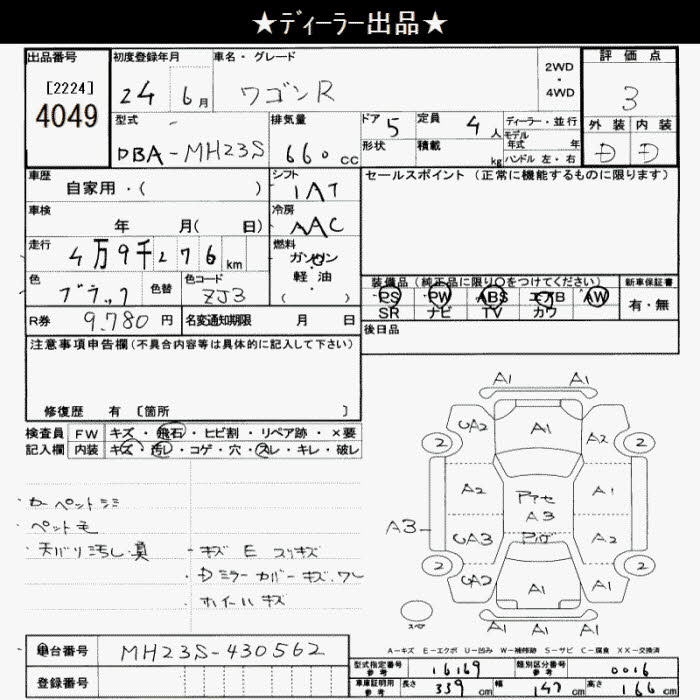 ★ディーラー出品★
出品番号
[2224]
4049
初度登録年月
24 6月
車名・グレード
ワゴンR
2WD
・
4WD
評価点
3
外装 内装
D D
型式
DBA-MH23S
排気量
660 cc
ドア 5
定員 4人
形状
積載 kg
ディーラー・並行
モデル
年式 年
ハンドル 左・右
車歴
自家用・( )
シフト
IAT
セールスポイント (正常に機能するものに限ります)
車検
年 月( 日)
冷房
AAC
走行
4万9千276km
燃料
ガソリン
・
軽油
( )
色
ブラック
色替
色コード
ZJ3
装備品 (純正品に限り○をつけてください)
PS PW ABS エアB AW
SR ナビ TV カワ
新車保証書
有・無
R券 9,780 円
名変通知期限 月 日
後日品
注意事項申告欄(不具合内容等は具体的に記入して下さい)
修復歴 有 [箇所 ]
検査員
記入欄
FW キズ・飛石・ヒビ割・リペア跡・×要
内装 キズ・汚レ・コゲ・穴・スレ・キレ・破レ
・カーペットシミ
・ペット毛
・天バリ汚レ・臭
・キズ E スリキズ
・Dミラーカバーキズ.ワレ
・ホイールキズ
A1 A1
UA2 A1 A2
2 2
A2 アアセ A1
A3
A3 UA3 アヴ A2
2 2
UA2 A1 A1
A1 A1 A1
スペ
A-キズ E-エクボ U-凹み W-補修跡 S-サビ C-腐食 XX-交換済
車台番号 MH23S-430562
登録番号
型式指定番号
参考
16169
類別区分番号
参考
0016
車庫証明用
参考
長さ 339cm 幅 147cm 高さ 166cm